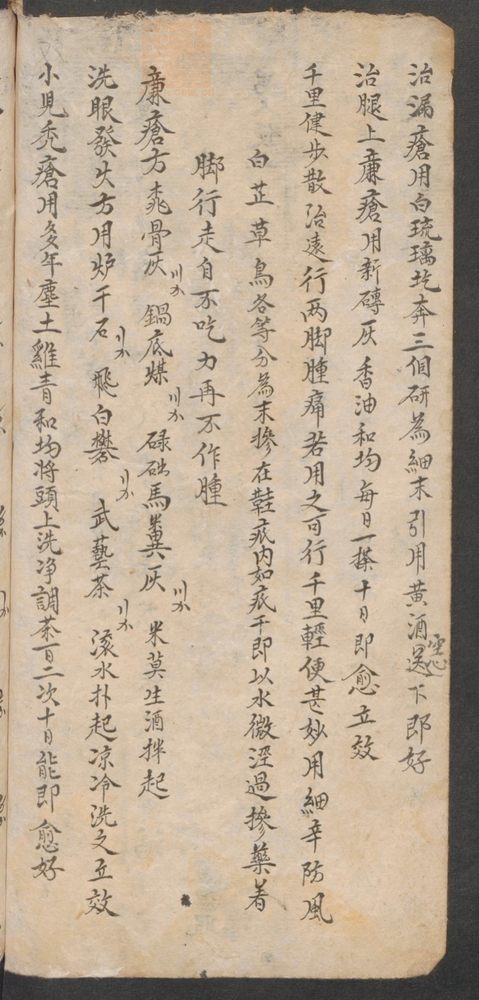 治漏瘡用白琉璃圪奔三個研為細末引用黃酒送下即好
空心
治腿上廉瘡用新磚灰香油和均每日一搽十日即愈立效
千里健步散治遠行两脚腫痛若用之可行千里輕便甚妙用細辛防風
白芷草烏各等分為末摻在鞋底内如底干即以水微溼過摻藥着
脚行走自不吃力再不作腫
廉瘡方 骨灰 鍋底煤 碌础馬糞灰 米莫生酒拌起
洗眼發火方用炉干石 飛白礬 武藝茶 滚水扑起凉冷洗之立效
小児秃瘡用多年塵土雞青和均將頭上洗净調茶一百二次十日能即愈好